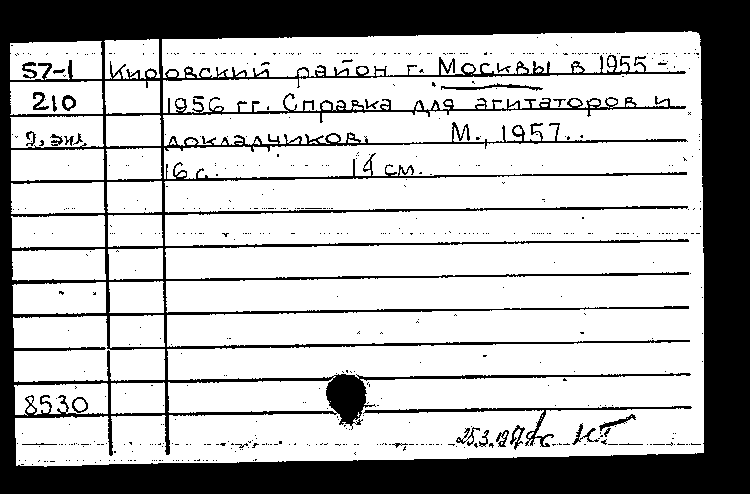 57-1 Кировский район г. Москвы в 1955 -
210 1956 гг. Справка для агитаторов и
2 экз. докладчиков. М., 1957.
16 с. 14 см.
8530
25.3.